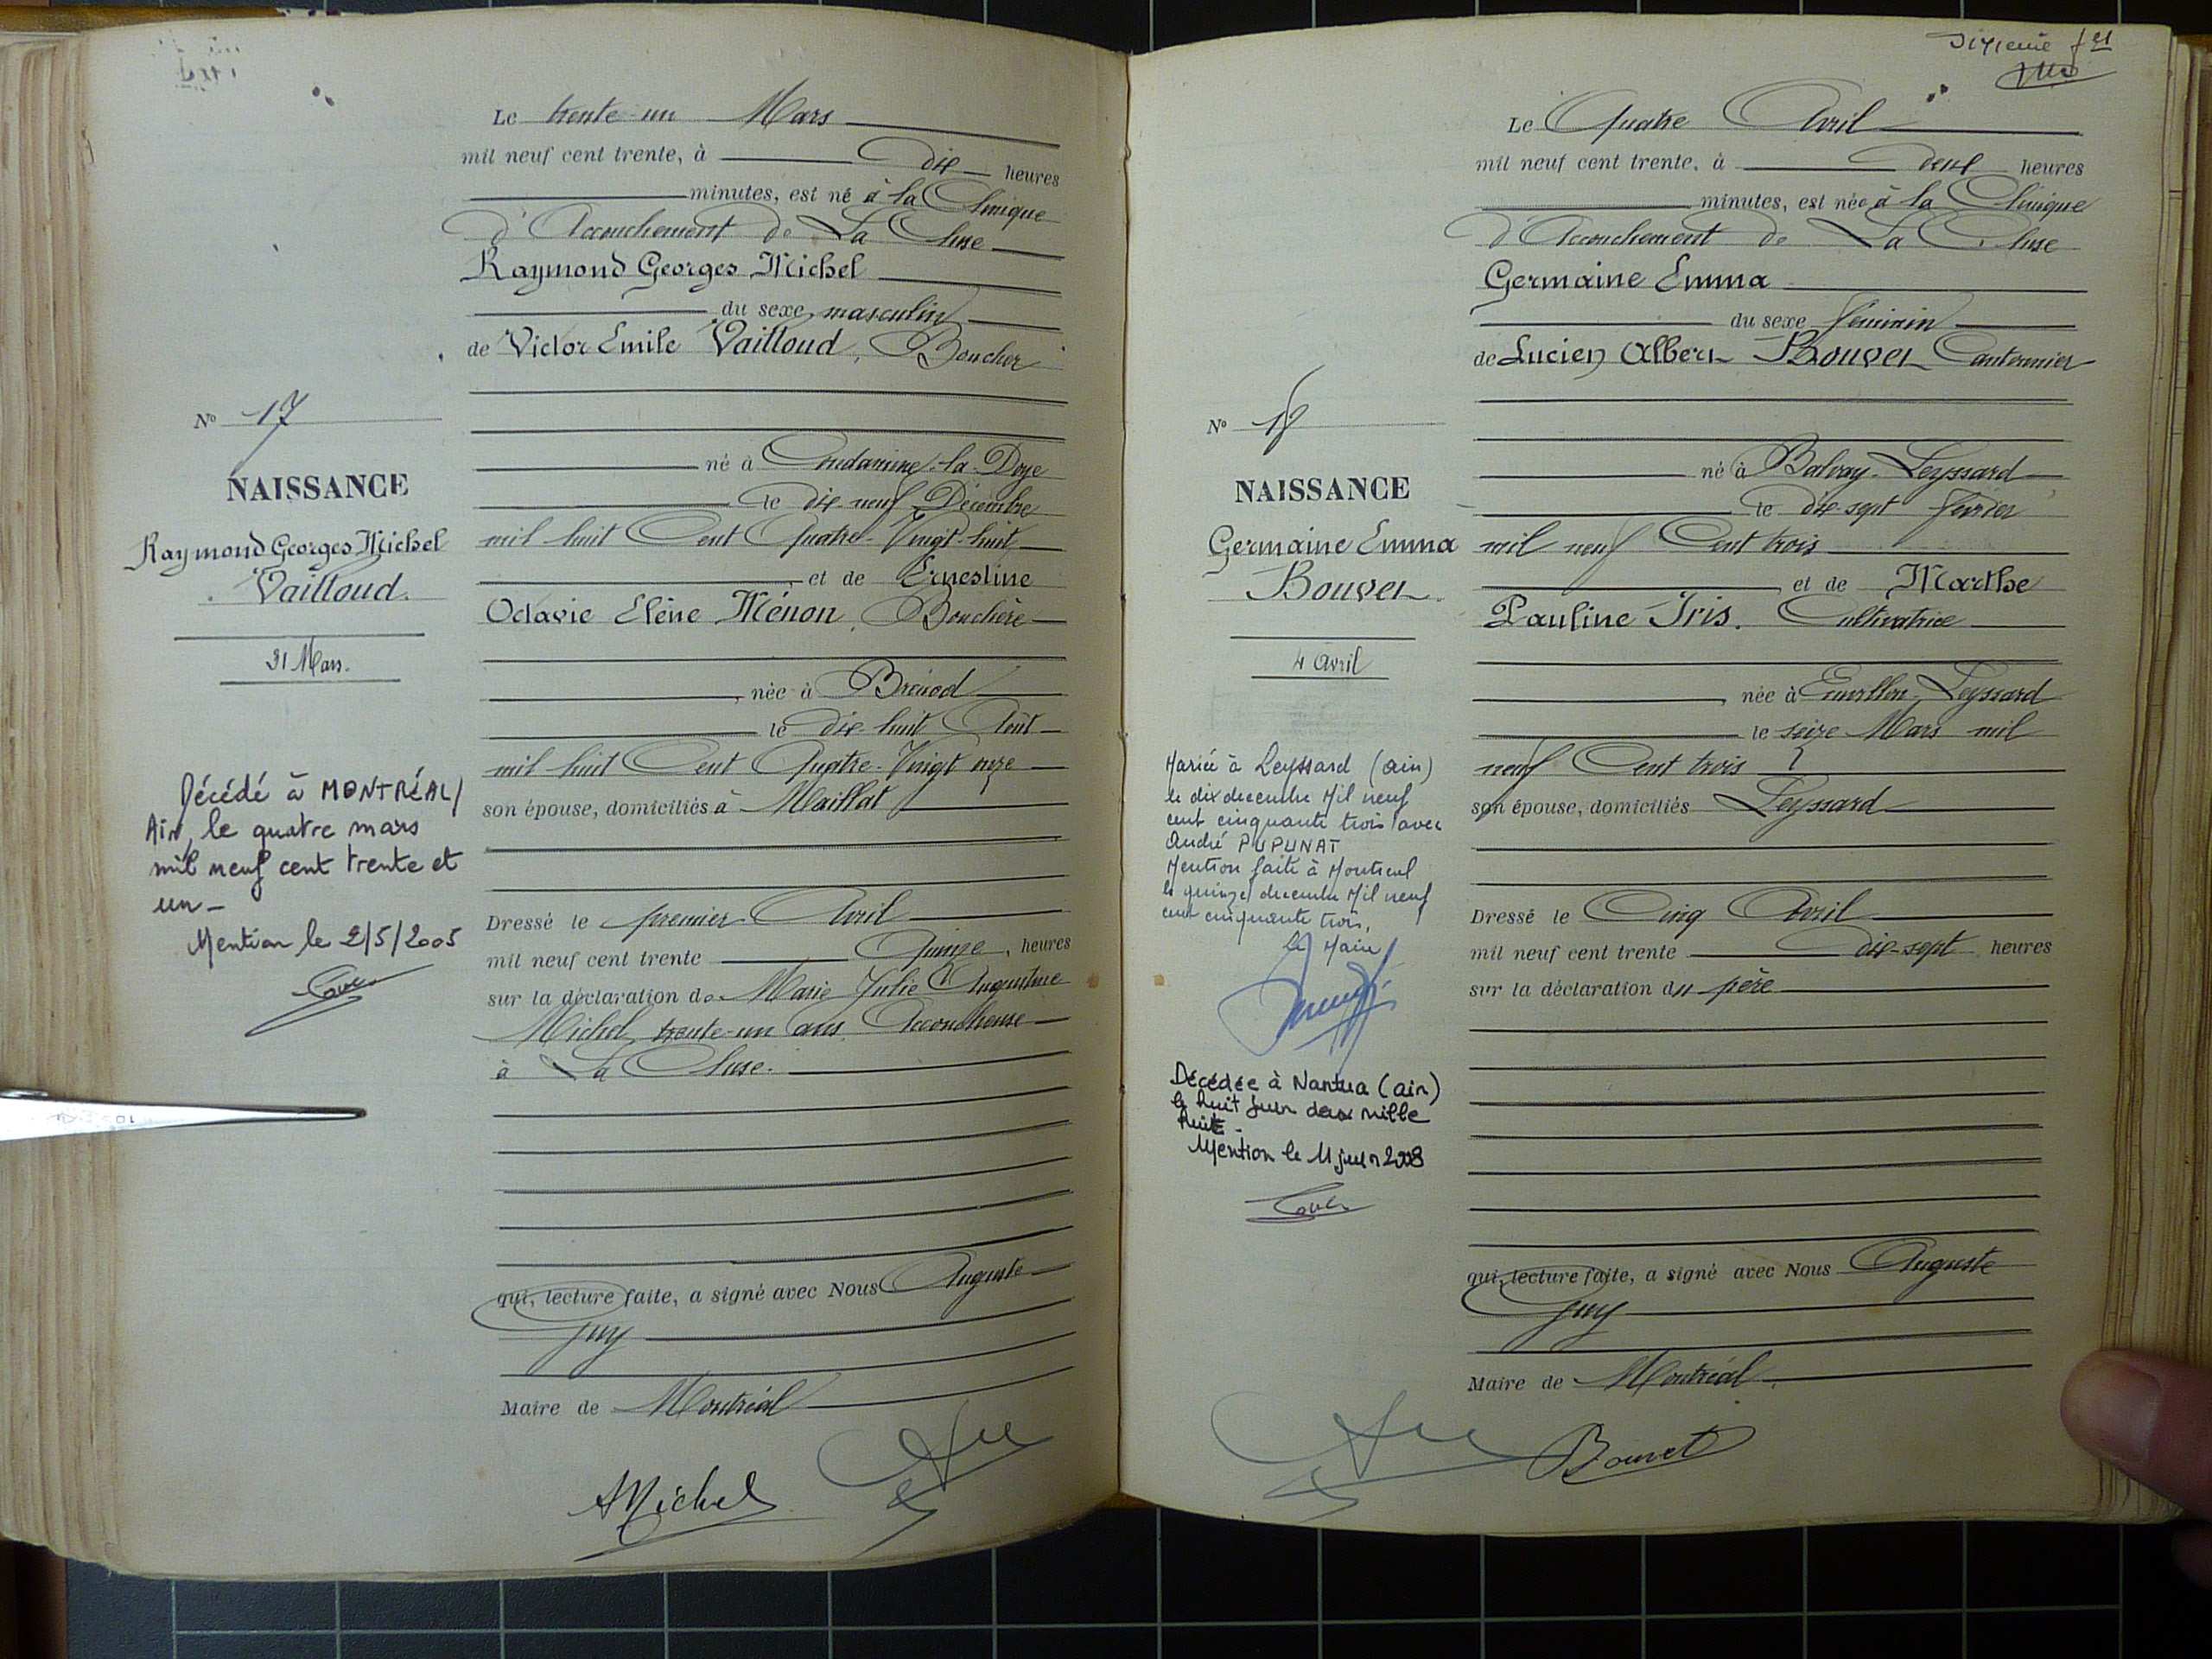 Le trente-un Mars
mil neuf cent trente, à dix heures
minutes, est né à la Clinique
d'Accouchement de La Cluse
Raymond Georges Michel
du sexe masculin
de Victor Emile Vailloud, Boucher
né à Condamine-la-Doye
le dix-neuf Décembre
mil huit Cent Quatre-Vingt-huit
et de Ernestine
Octavie Elène Ménon, Bouchère
née à Brénod
le dix-huit Août
mil huit Cent Quatre-Vingt onze
son épouse, domiciliés à Maillat
Dressé le premier Avril
mil neuf cent trente Quinze, heures
sur la déclaration de Marie Julie Augustine
Michel, trente-un ans, Accoucheuse
à La Cluse.
qui, lecture faite, a signé avec Nous Auguste
Guy
Maire de Montréal
AMichel
No 17
NAISSANCE
Raymond Georges Michel
Vailloud.
31 Mars.
Décédé à MONTRÉAL/
Ain, le quatre mars
mil neuf cent trente et
un_
Mention le 2/5/2005
f 21
Le Quatre Avril
mil neuf cent trente, à deux heures
minutes, est née à la Clinique
d'Accouchement de La Cluse
Germaine Emma
du sexe féminin
de Lucien Albert Bouvet Cantonnier
né à Balvay-Leyssard
le dix-sept février
mil neuf Cent trois
et de Marthe
Pauline Iris. Cultivatrice
née à Leyssard
le seize Mars mil
neuf Cent trois
son épouse, domiciliés Leyssard
Dressé le Cinq Avril
mil neuf cent trente dix-sept heures
sur la déclaration du père
qui, lecture faite, a signé avec Nous Auguste
Guy
Maire de Montréal.
Bouvet
No 18
NAISSANCE
Germaine Emma
Bouvet
4 Avril
Mariée à Leyssard (ain)
le dix decembre Mil neuf
cent cinquante trois avec
André PUPUNAT
Mention faite à Montreal
le quinze decembre Mil neuf
cent cinquante trois,
le Maire
Décédée à Nantua (ain)
le huit juin deux mille
huit_
Mention le 11 juin 2008